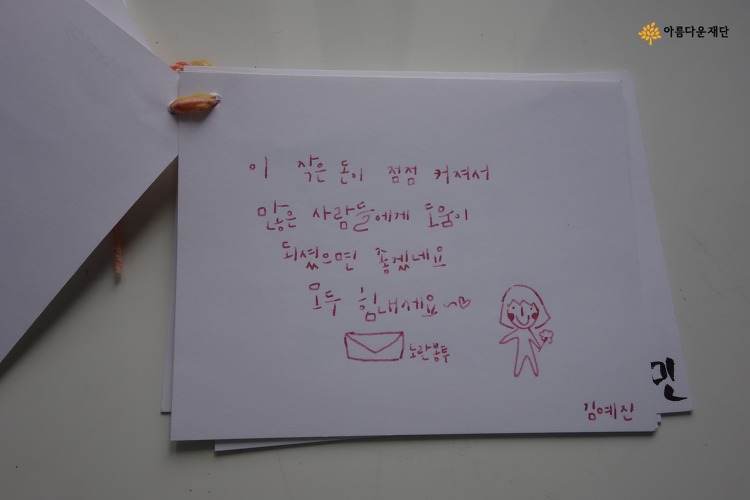 아름다운재단
이 작은 돈이 점점 커져서
많은 사람들에게 도움이
되셨으면 좋겠네요
모두 힘내세요~♡
노란봉투
김예진